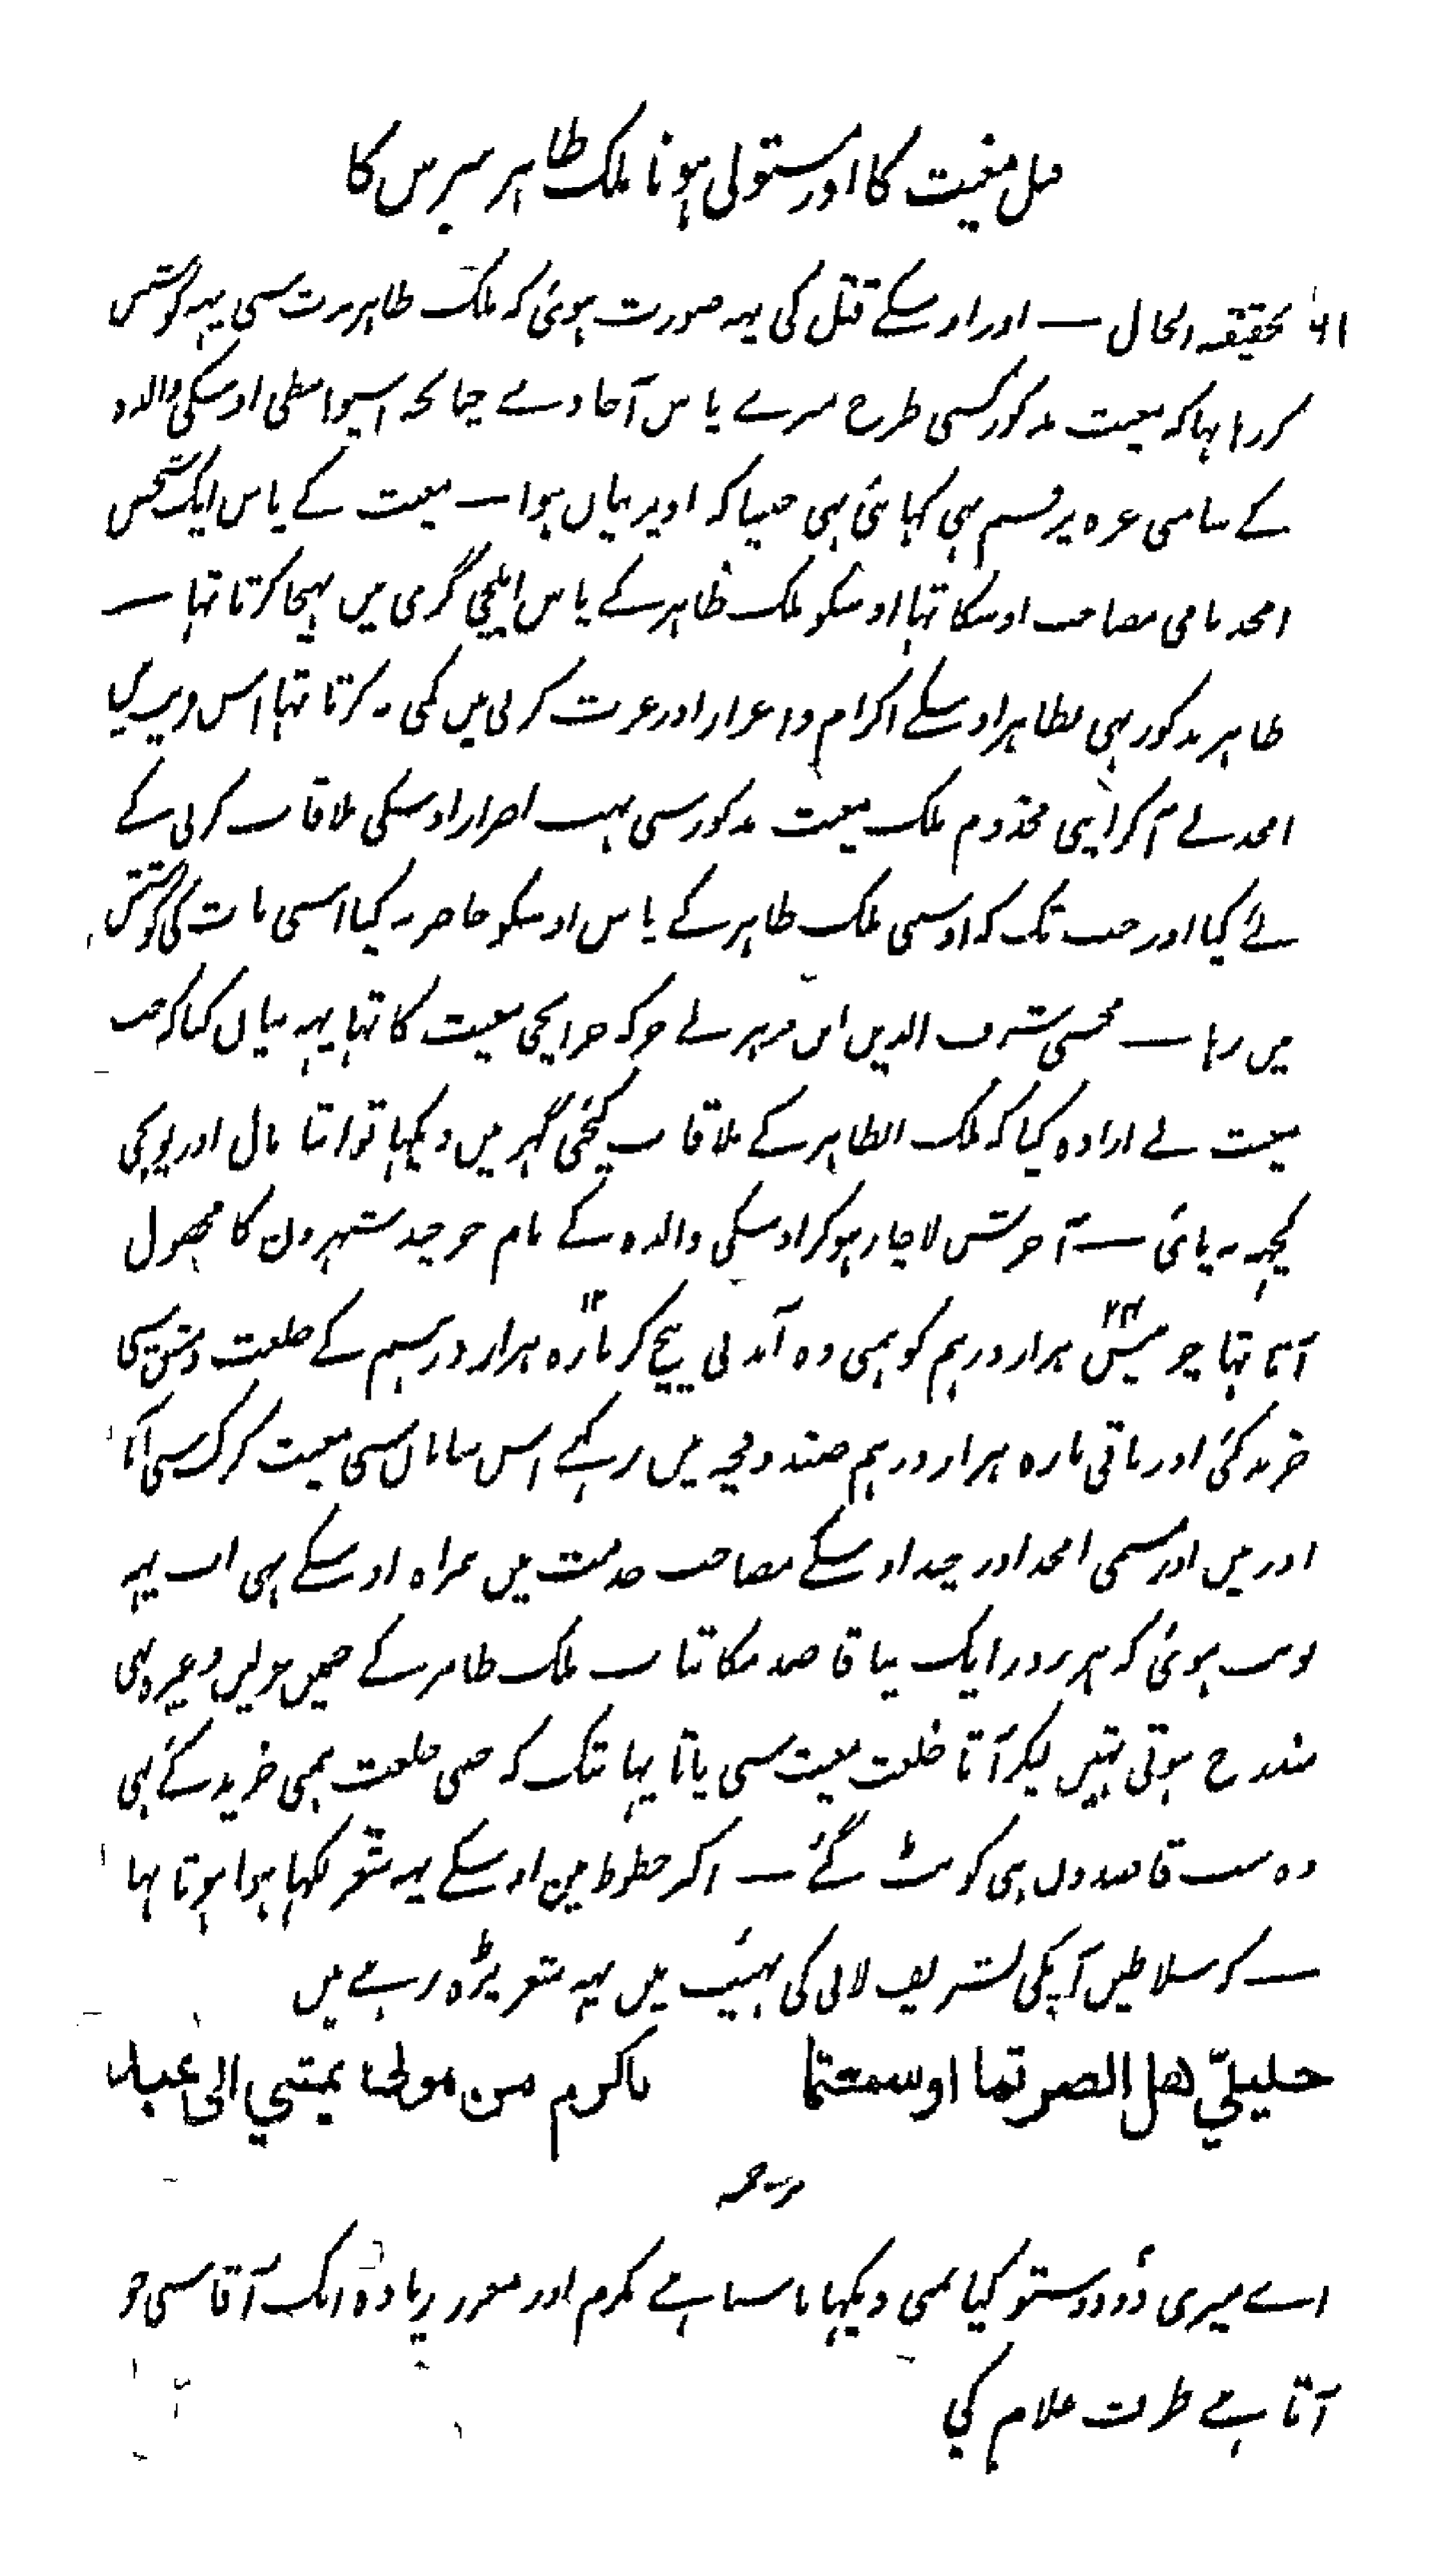 قتل مغیث کا اور مستولی ہونا ملک طاہر بیبرس کا
تحقیقہ الحال — اور اوسکے قتل کی یہہ صورت ہوئی کہ ملک طاہر مدت سی یہہ کوشش
کر رہا تہا کہ مغیث مذکور کسی طرح میرے پاس آجاوے چنانچہ اسیواسطی اوسکی والدہ
کے سامنی غزہ پر قسم بہی کہائی تہی جیساکہ اوپر بیان ہوا — مغیث کے پاس ایک شخص
امجد نامی مصاحب اوسکا تہا اوسکو ملک ظاہر کے پاس ایلچی گری میں بہیجا کرتا تہا —
طاہر مذکور بہی بظاہر اوسکے اکرام و اعزاز اور عزت کرنی میں کمی نہ کرتا تہا اس
امجد نے آکر اپنی مخدوم ملک مغیث مذکور سی بہت اصرار اوسکی ملاقات کرنی کے
لئے کیا اور جب تک کہ اوسنی ملک طاہر کے پاس اوسکو حاضر نہ کیا اسی بات کی کوشش
میں رہا — شرف الدین ابن مزہر نے جو کہ خزانچی مغیث کا تہا یہہ بیان کیا کہ جب
مغیث نے ارادہ کیا کہ ملک الطاہر کے ملاقات کیجئی گہر میں دیکہا تو اتنا مال اور پونجی
کچہہ نہ پائی — آخرش لاچار ہوکر اوسکی والدہ کے نام جو چند شہرون کا محصول
آتا تہا چوبیس ۲۴ ہزار درہم کو بہی وہ آمدنی بیچ کر بارہ ۱۲ ہزار درہم کے خلعت دمشق سی
خرید کئی اور باقی بارہ ہزار درہم صندوقچہ میں رکہے اس سامان سی مغیث کرک سی آیا
اور میں اور مسمی امجد اور چند اوسکے مصاحب خدمت میں ہمراہ اوسکے تہی اب یہہ
نوبت ہوئی کہ ہر روز ایک نیا قاصد مکاتبات ملک طاہر کے جمیں وغیرہ بہی
مندرج ہوتی تہیں لیکر آتا خلعت مغیث سی پاتا یہانتک کہ جتنی خلعت بہی خرید کئے تہی
وہ سب قاصدوں ہی کو بٹ گئے — اکثر خطوط مین اوسکے یہہ شعر لکہا ہوا ہوتا تہا
— کہ سلاطین آپکی تشریف لانی کی تہنیت میں یہہ شعر پڑہ رہے ہیں
خلیلیّ هل ابصرتما او سمعتما باکرم من مولی یمشی الی عبد
ترجمہ
اے میری دو دوستو کیا تمنی دیکہا یا سنا ہے مکرم اور معزز زیادہ ایک آقا سی جو
آتا ہے طرف غلام کی